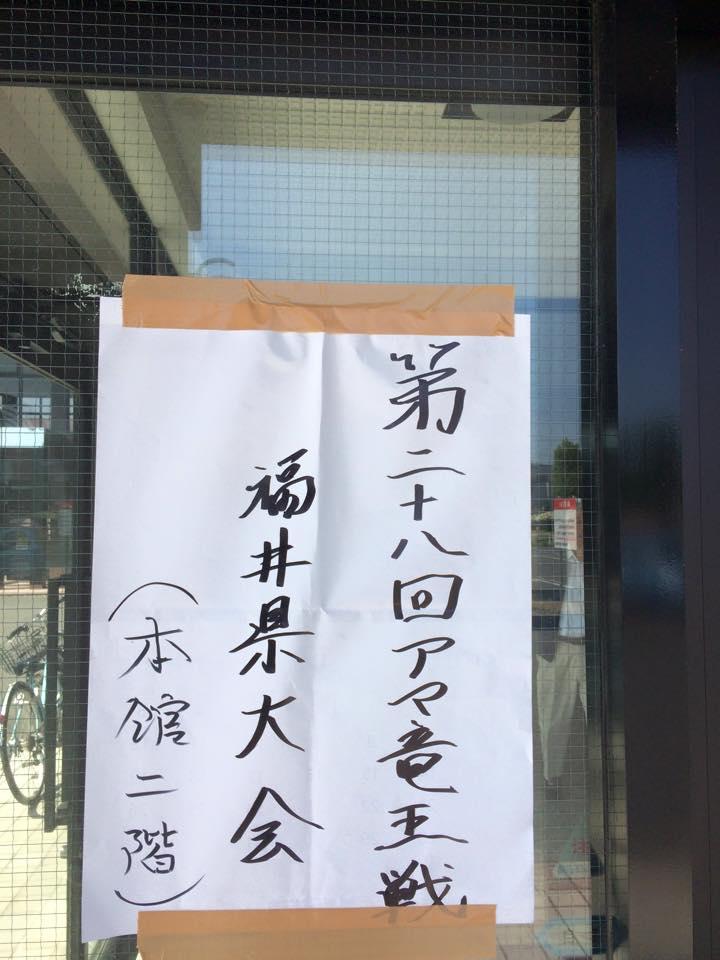 第二十八回アマ竜王戦
福井県大会
(本館二階)